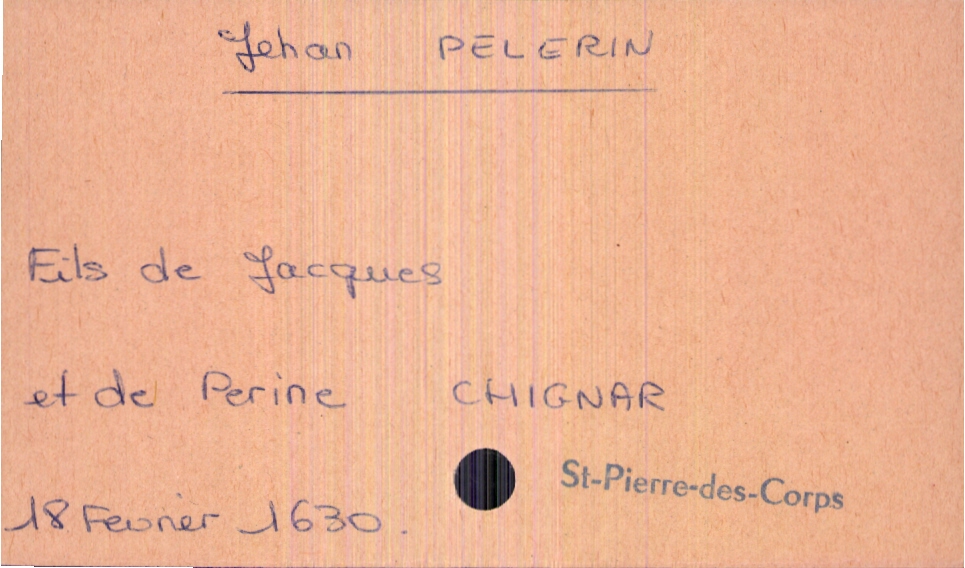 Jehan PELERIN
Fils de Jacques
et de Perine CHIGNAR
St-Pierre-des-Corps
18 Fevrier 1630.